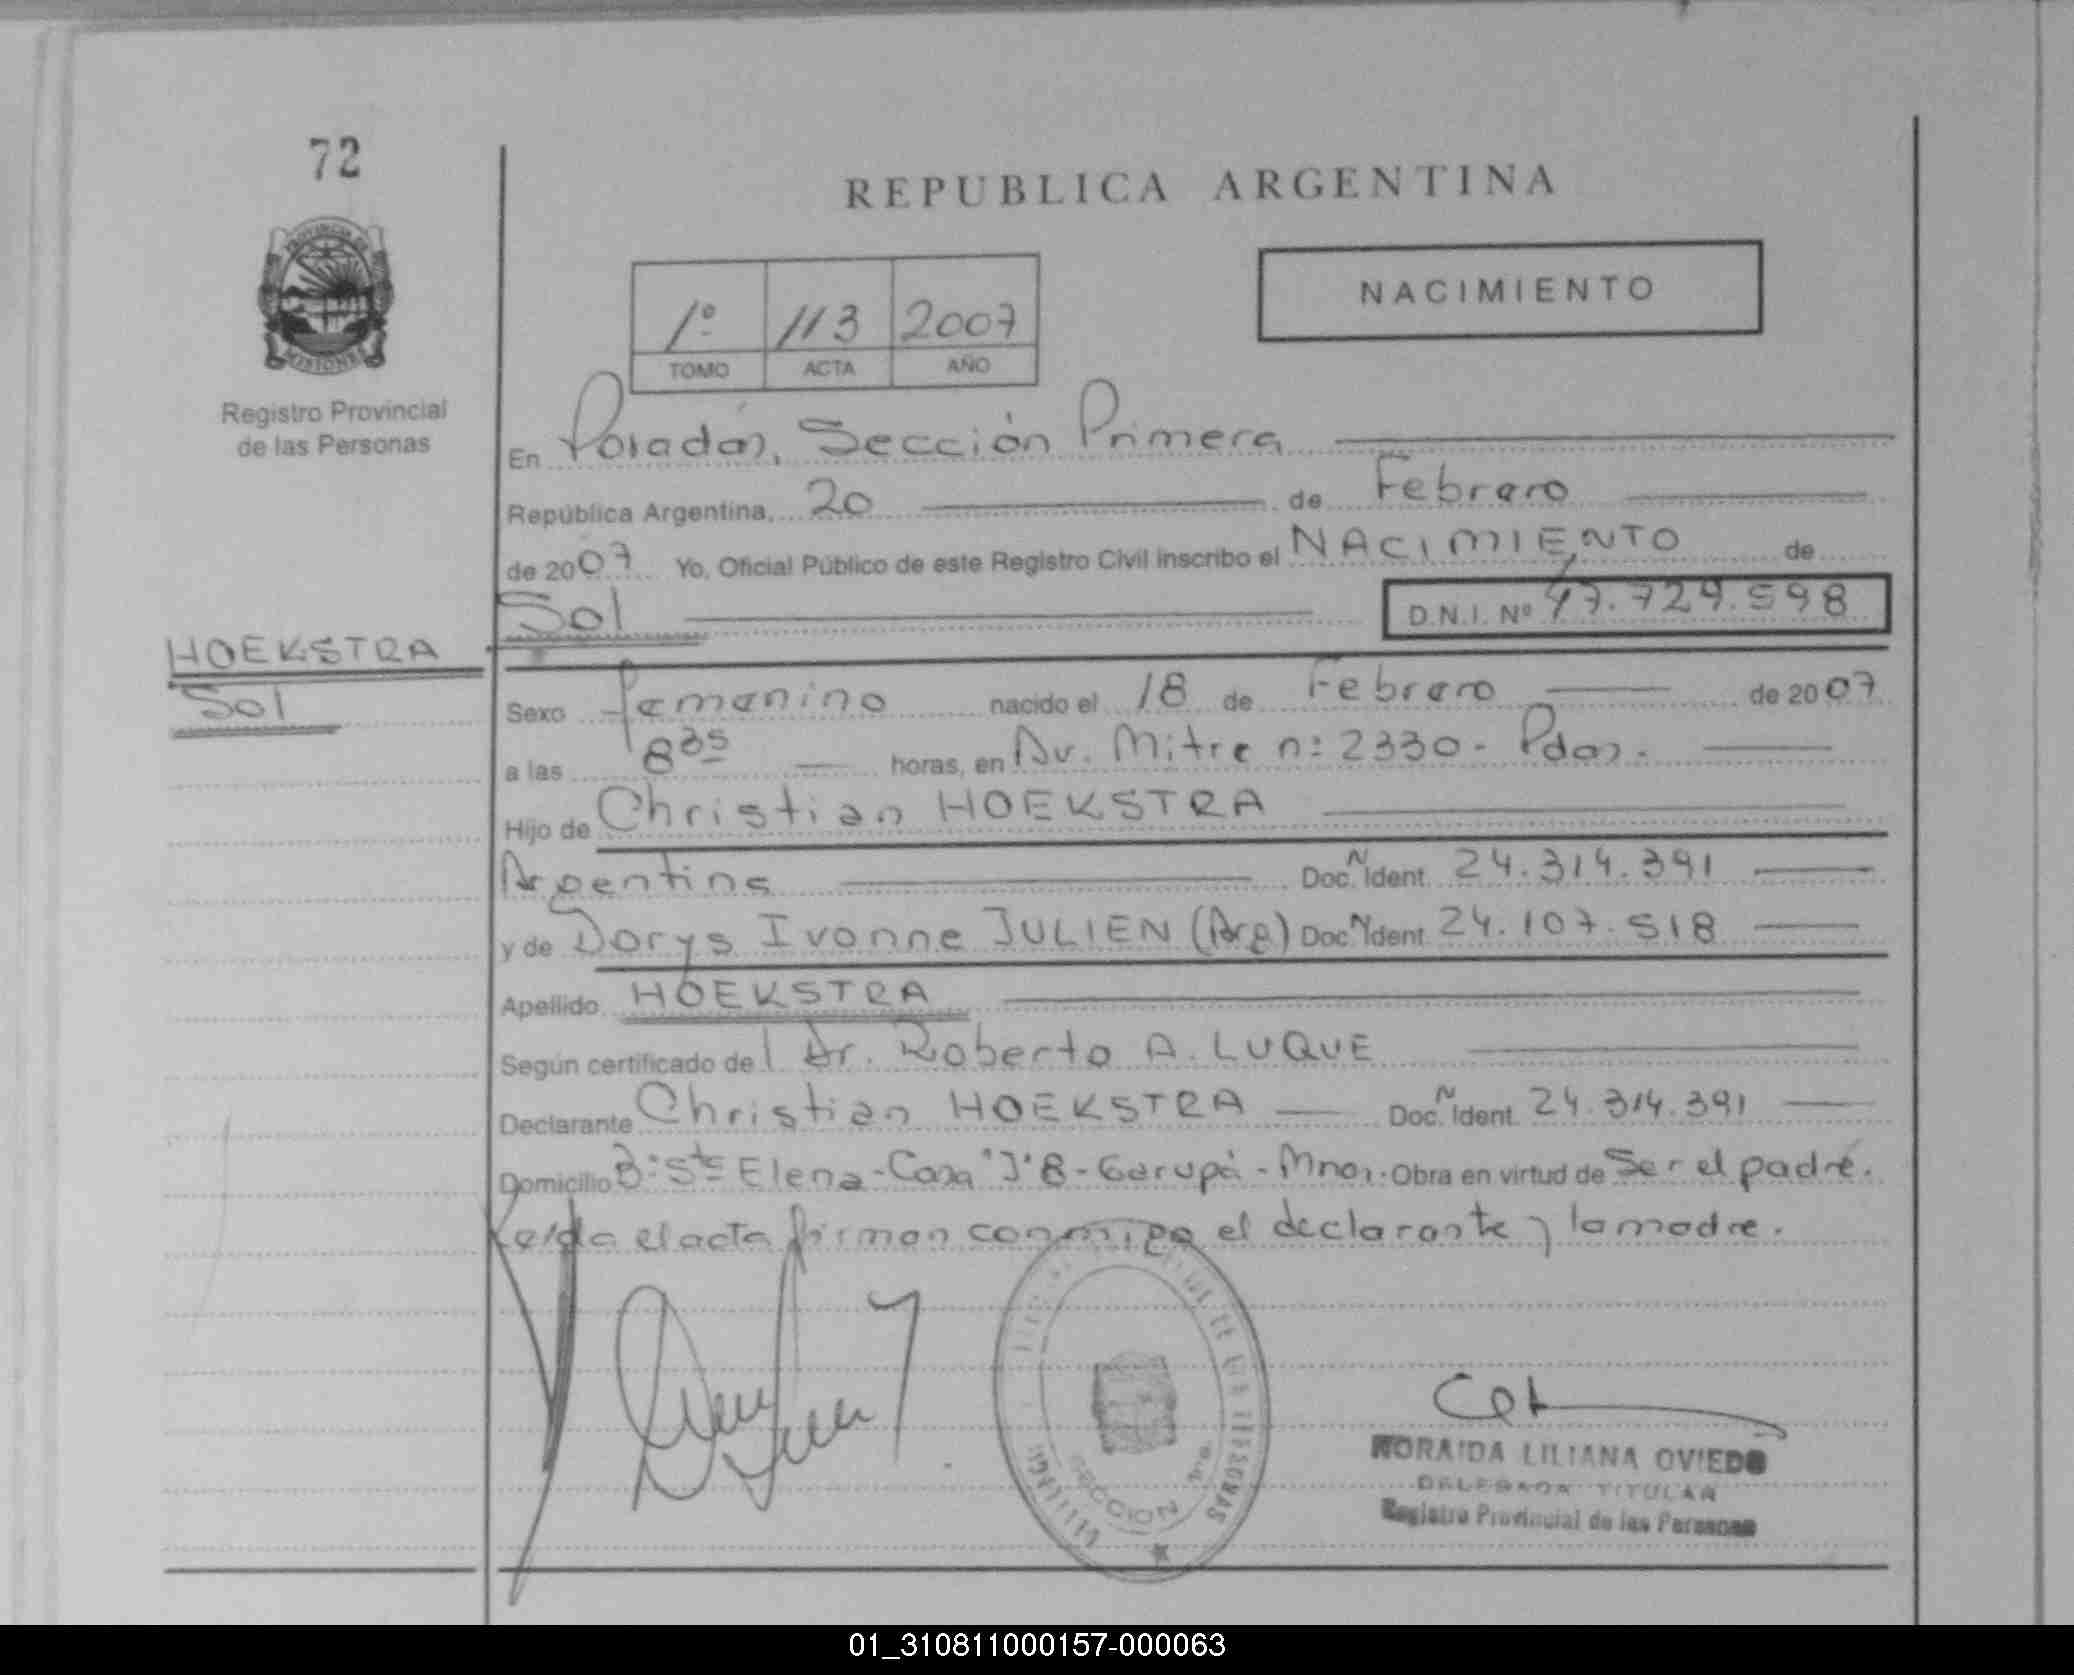 72
REPUBLICA ARGENTINA
PROVINCIA DE
MISIONES
Registro Provincial
de las Personas
1º 113 2007
TOMO ACTA AÑO
NACIMIENTO
En Posadas, Sección Primera
República Argentina, 20 de Febrero
de 2007 Yo, Oficial Público de este Registro Civil inscribo el NACIMIENTO de
Sol D.N.I. Nº 47.729.598
HOEKSTRA
Sol
Sexo femenino nacido el 18 de Febrero de 2007
a las 8 35 horas, en Av. Mitre nº 2330 - Pdas.
Hijo de Christian HOEKSTRA
Argentina Doc. N Ident. 24.314.391
y de Dorys Ivonne JULIEN (Arg) Doc. N Ident. 24.107.518
Apellido HOEKSTRA
Según certificado del Dr. Roberto A. LUQUE
Declarante Christian HOEKSTRA Doc. N Ident. 24.314.391
Domicilio Bº Sta Elena - Casa "J" 8 - Garupá - Mnes. Obra en virtud de Ser el padre.
Leída el acta firman conmigo el declarante y la madre.
DE LAS PERSONAS
SECCION 1ra.
NORAIDA LILIANA OVIEDO
DELEGADA TITULAR
Registro Provincial de las Personas
01_310811000157-000063